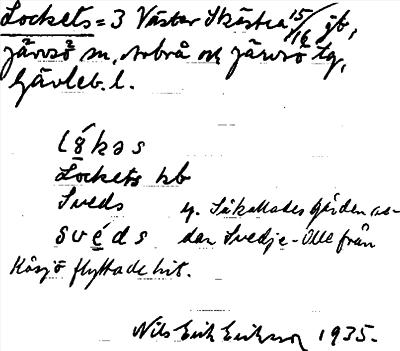 Lockets = 3 Väster Skästra 15/16 jb,
järvsö sn, Arbrå och järvsö tg,
Gävleb. l.
Lockets kb
Sveds ɥ. Såkallades gården se-
svéds dan Svedje-Olle från
Kåsjö flyttade hit.
Nils Erik Erikson 1935.